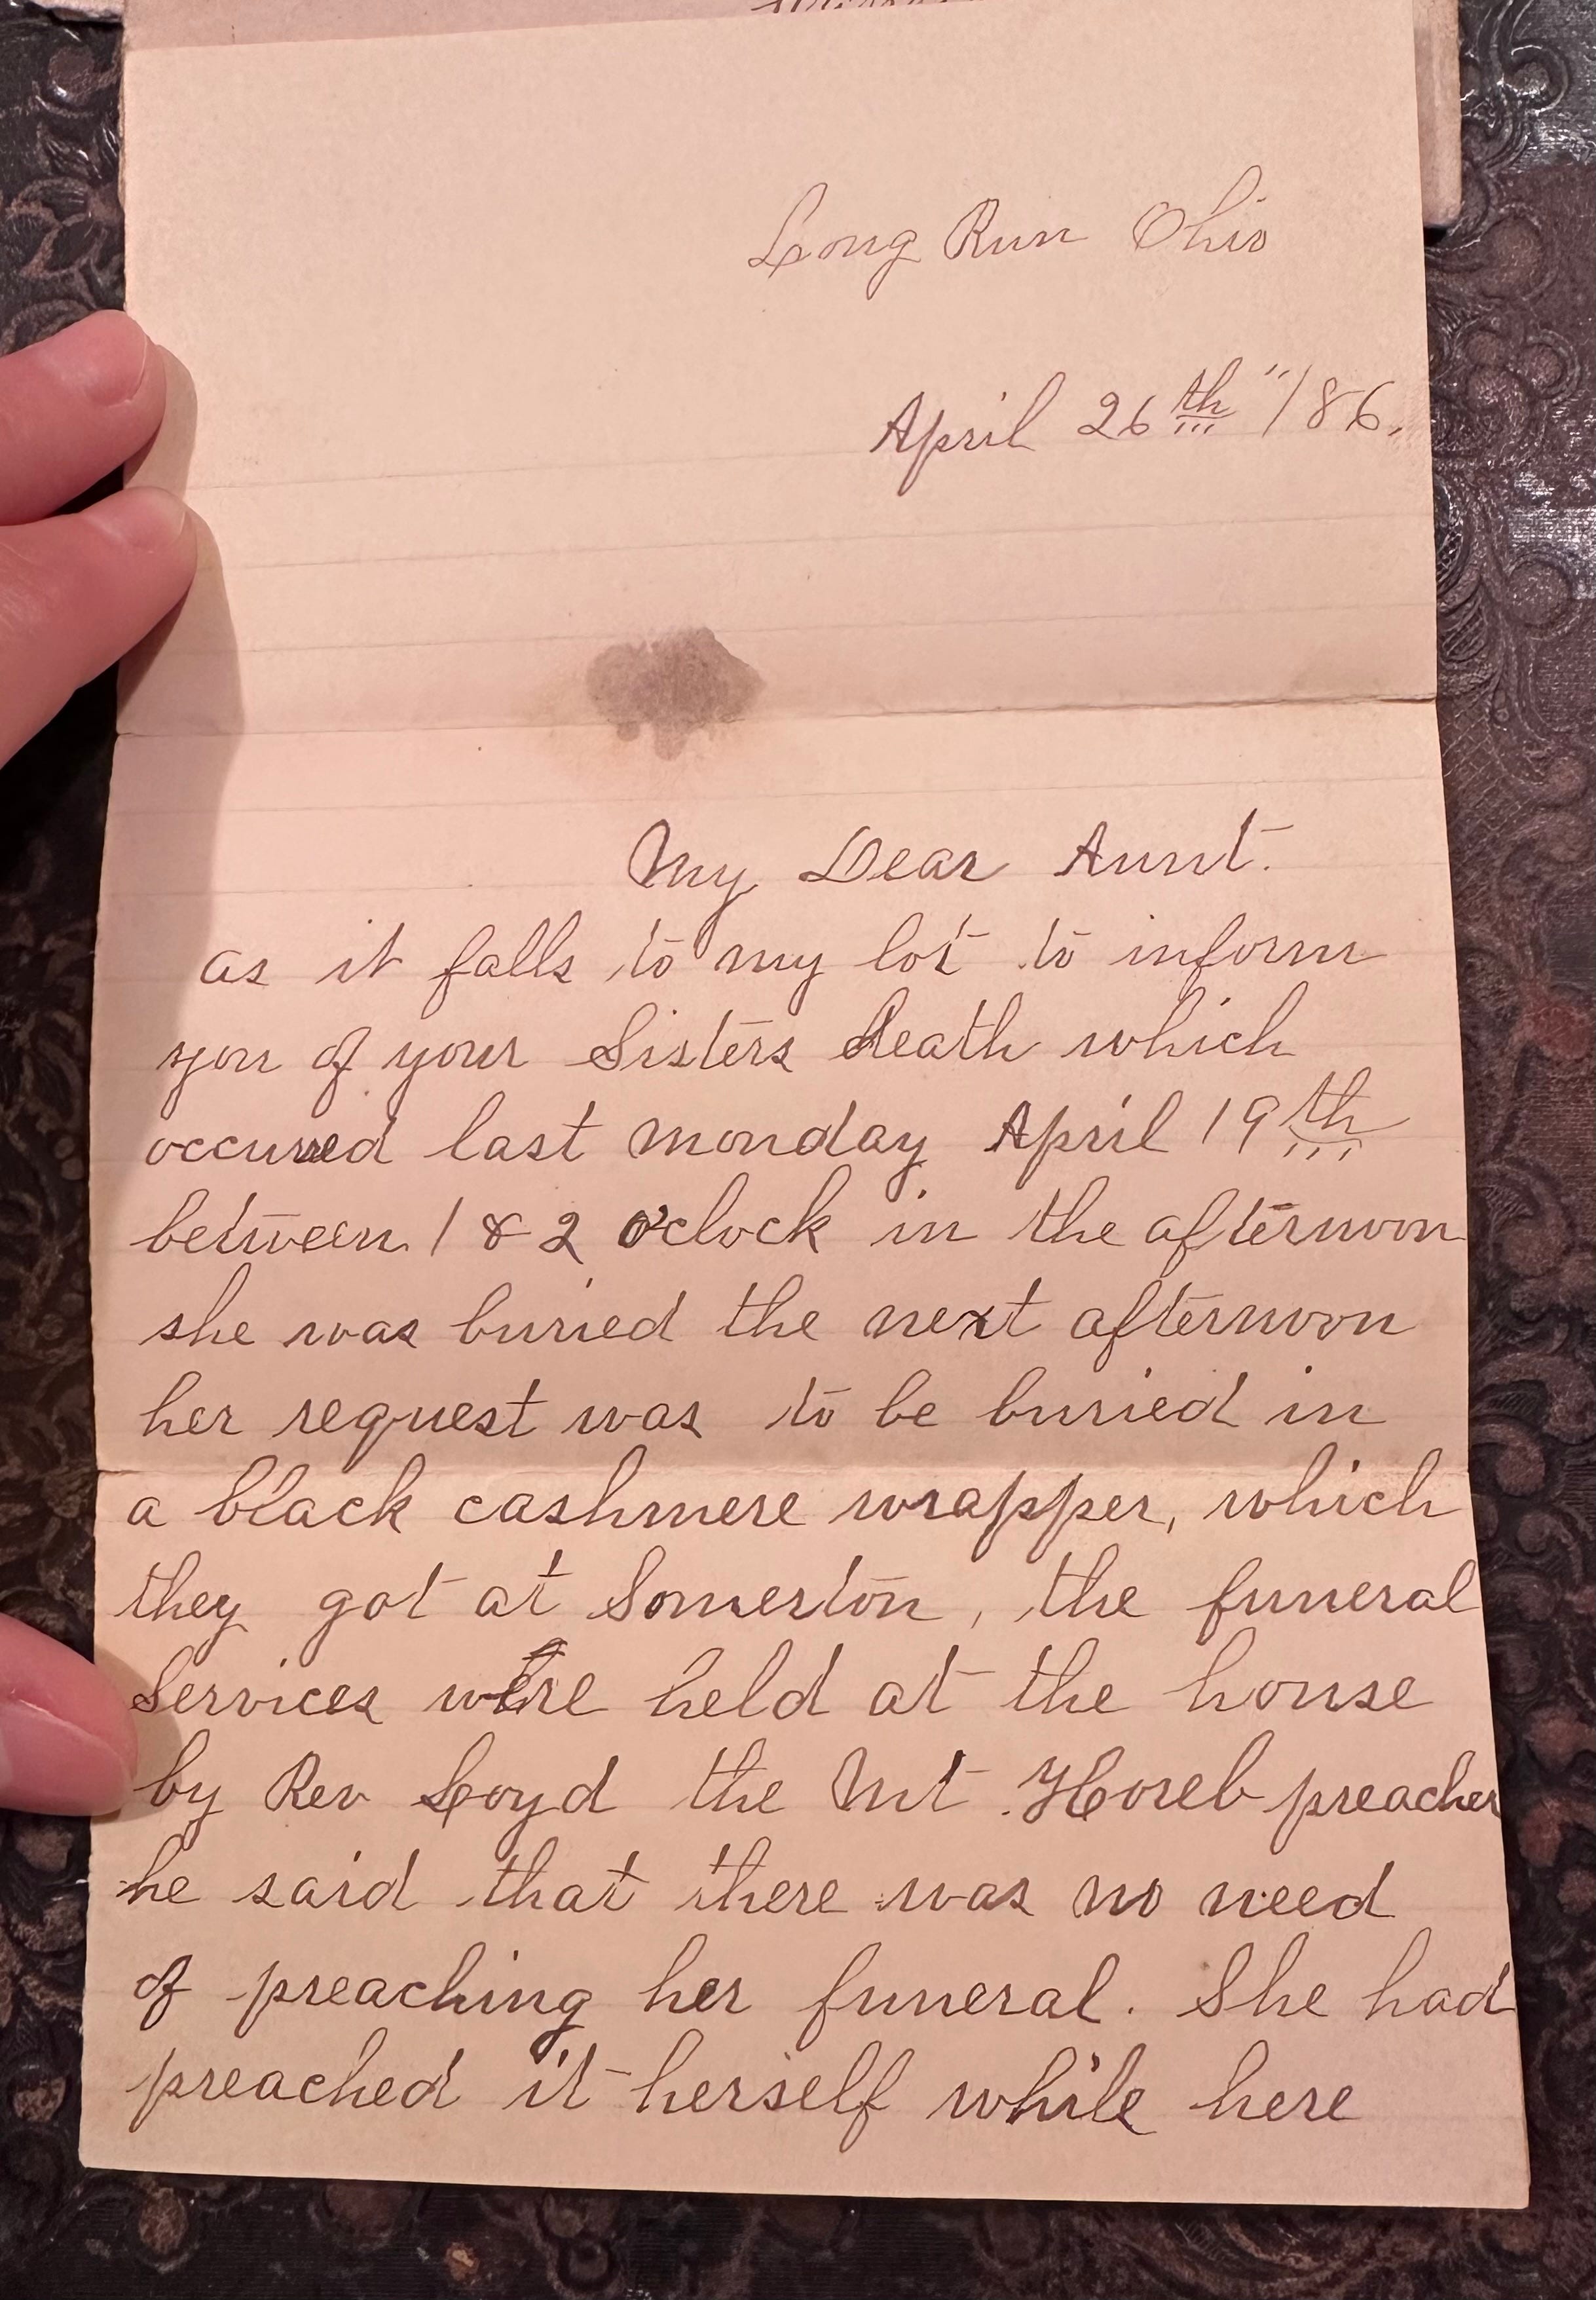 Long Run Ohio
April 26th "/86.
My Dear Aunt.
as it falls to my lot to inform
you of your Sisters death which
occured last monday April 19th
between 1 & 2 o'clock in the afternoon
she was buried the next afternoon
her request was to be buried in
a black cashmere wrapper, which
they got at Somerton, the funeral
Services were held at the house
by Rev Loyd the Mt Horeb preacher
he said that there was no need
of preaching her funeral. She had
preached it herself while here